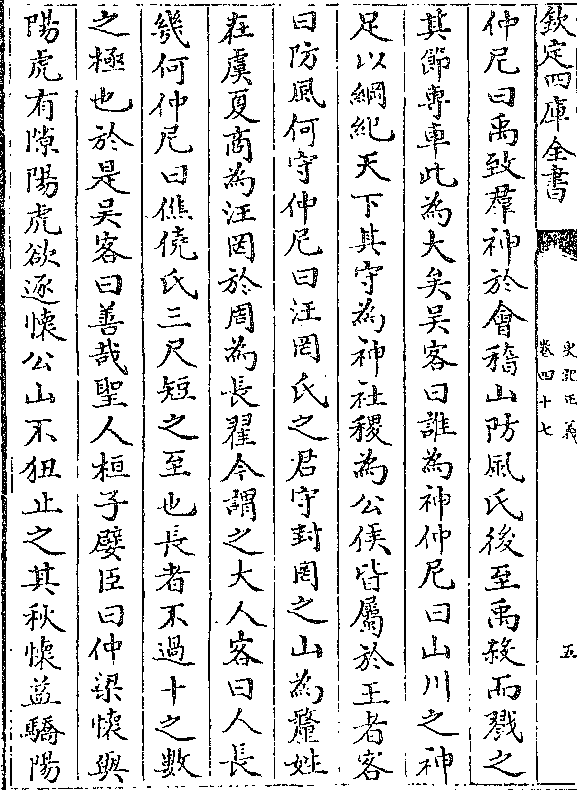 欽定四庫全書
史記正義
卷四十七
五
仲尼曰禹致羣神於會稽山防風氏後至禹殺而戮之
其節専車此為大矣吴客曰誰為神仲尼曰山川之神
足以綱紀天下其守為神社稷為公侯皆屬於王者客
曰防風何守仲尼曰汪罔氏之君守封罔之山為釐姓
在虞夏商為汪罔於周為長翟今謂之大人客曰人長
幾何仲尼曰僬僥氏三尺短之至也長者不過十之數
之極也於是吴客曰善哉聖人桓子嬖臣曰仲梁懷與
陽虎有隙陽虎欲逐懷公山不狃止之其秋懷益驕陽